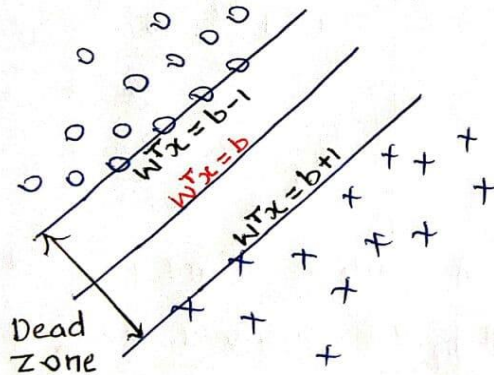 WᵀX = b-1
WᵀX = b
WᵀX = b+1
Dead
Zone